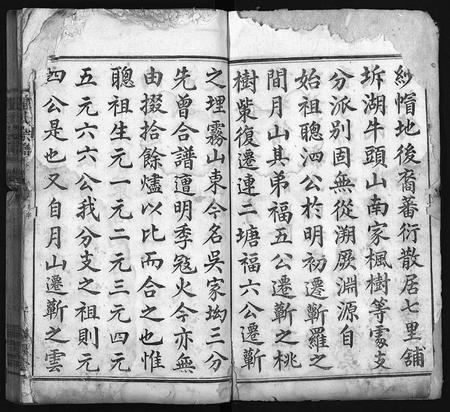 紗帽地後裔蕃衍散居七里舖
坼湖牛頭山南家楓樹等䖏支
分派別固無從溯厥淵源自
始祖聰泗公於明初遷蘄羅之
間月山其弟福五公遷蘄之桃
樹紫復遷連二塘福六公遷蘄
之埋霧山東今名吳家坳三分
先曾合譜遭明季冦火今亦無
由掇拾餘燼以比而合之也惟
聰祖生元一元二元三元四元
五元六六公我分支之祖則元
四公是也又自月山遷蘄之雲